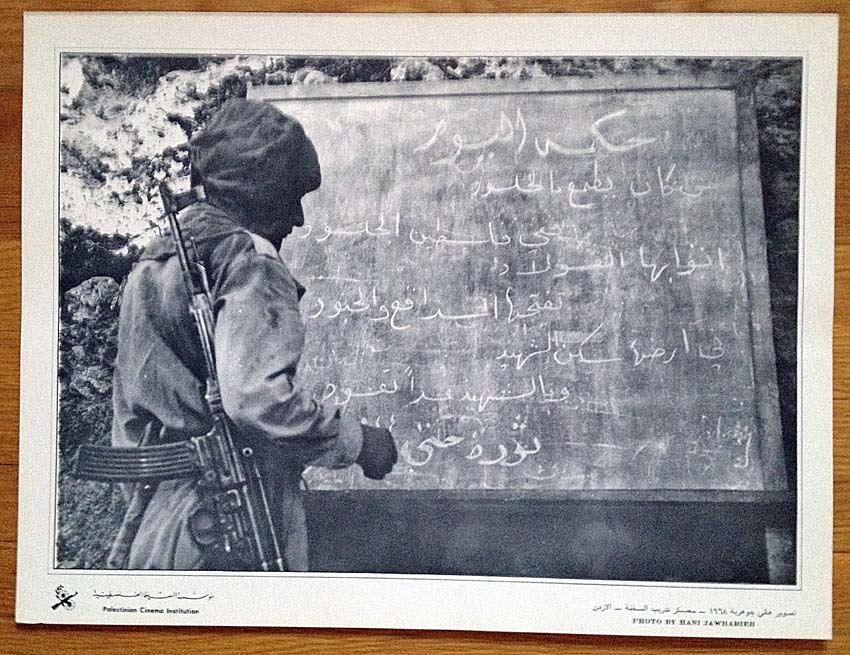 حكمة اليوم
من كان يطمع بالخلود
ففي فلسطين الخلود
ابوابها الفولاذ
تفتحها المدافع
في ارضها سكن الشهيد
وبالشهيد غداً
ثورة حتى
مؤسسة السينما الفلسطينية
Palestinian Cinema Institution
تصوير هاني جوهرية ١٩٦٨ – معسكر تدريب – الاردن
PHOTO BY HANI JAWHARIEH